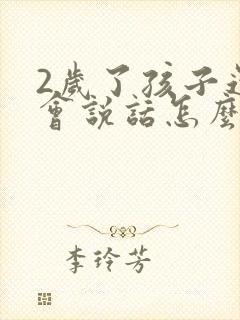 2歲了孩子還
會說話怎麼
李玲芳